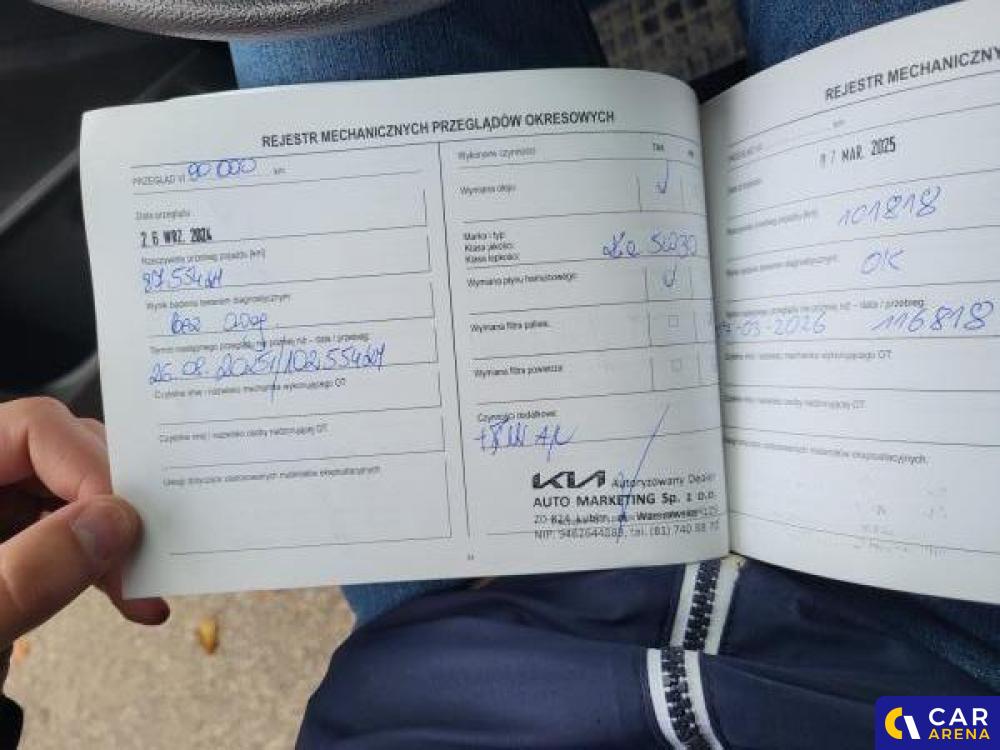 REJESTR MECHANICZNYCH PRZEGLĄDÓW OKRESOWYCH
PRZEGLĄD VI 90 000 km
Data przeglądu
26 WRZ. 2024
Rzeczywisty przebieg pojazdu [km]
87554
Wynik badania testerem diagnostycznym
Termin następnego przeglądu, nie później niż – data / przebieg
26.09.2025 / 102554
Czytelne imię i nazwisko mechanika wykonującego OT
Czytelne imię i nazwisko osoby nadzorującej OT
Uwagi dotyczące zastosowanych materiałów eksploatacyjnych
Wykonane czynności: Tak
Wymiana oleju:
Marka i typ:
Klasa jakości:
Klasa lepkości:
5W30
Wymiana płynu hamulcowego:
Wymiana filtra paliwa:
Wymiana filtra powietrza:
Czynności dodatkowe:
KIA Autoryzowany Dealer
AUTO MARKETING Sp. z o.o.
NIP: 9462644089, tel. (81) 740 88 72
REJESTR MECHANICZNY
km
07 MAR. 2025
101818
OK
-03-2026 116818
Czytelne imię i nazwisko mechanika wykonującego OT:
Czytelne imię i nazwisko osoby nadzorującej OT:
Uwagi dotyczące zastosowanych materiałów eksploatacyjnych:
CAR
ARENA